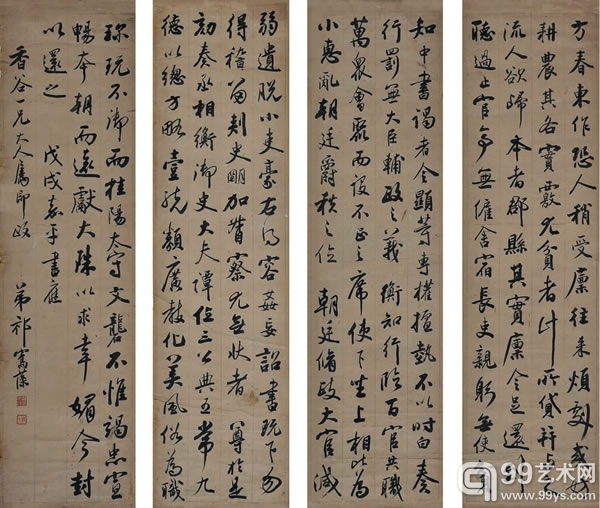 方春東作恐人稍受廩往来煩劇或妨
耕農其各實覈尤貧者計所貸并与之
流人欲歸本者郡縣其實廩令足還到
聽過止官亭無雇舍宿長吏親躬無使貧
弱遺脫小吏豪右得容姦妄詔書既下勿
得稽留刺史明加督察尤無狀者 尊於是
劾奏丞相衡御史大夫譚位三公典五常九
德以總方略壹統類廣教化美風俗為職
知中書謁者令顯等專權擅埶不以時白奏
行罰無大臣輔政之義衡知行臨百官共職
萬衆會聚而設不正之席使下坐上相比為
小惠亂朝廷爵秩之位 朝廷脩政大官減
珍玩不御而桂陽太守文礱不惟竭忠宣
暢本朝而遠獻大珠以求幸媚今封
以還之 戊戌嘉平書應
香谷一兄大人屬即政 弟祁寯藻
99艺术网
www.99ys.com